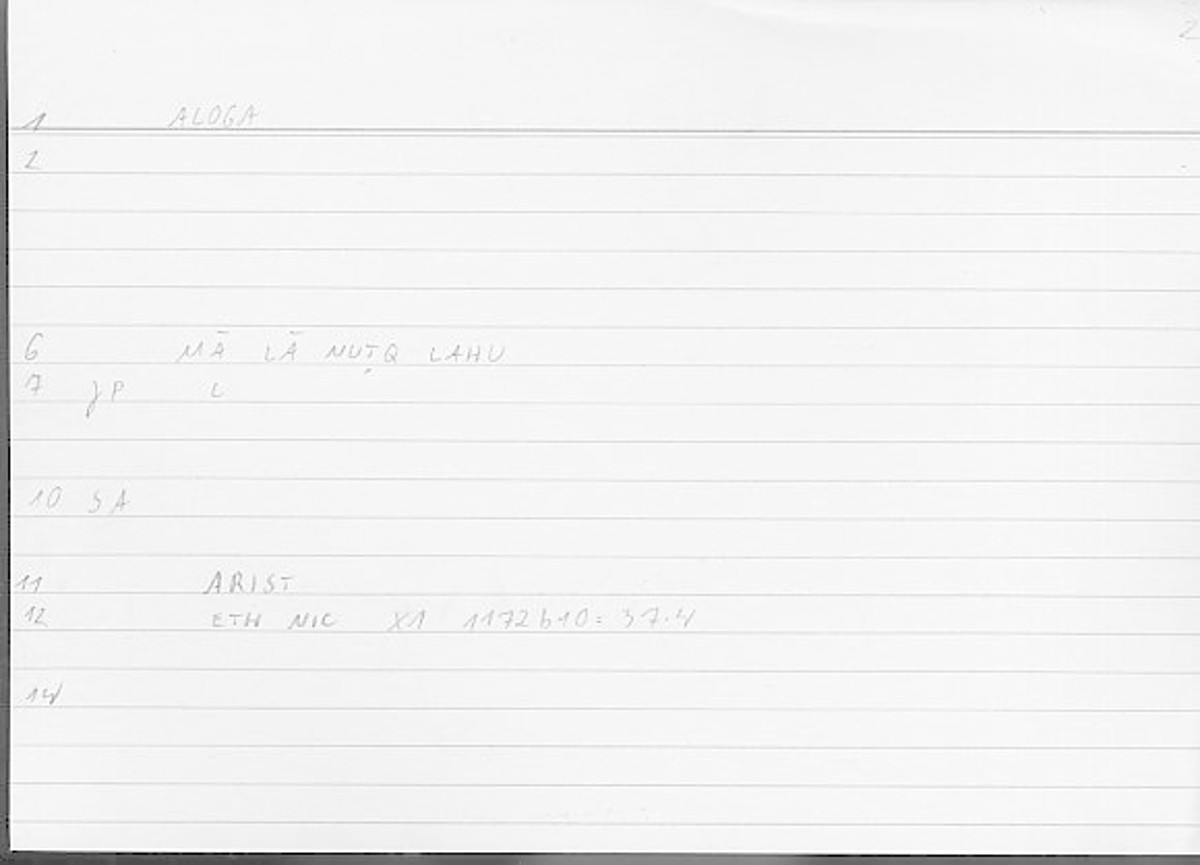 2
1 ALOGA
2
6 MĀ LĀ NUṬQ LAHU
7 JP L
10 SA
11 ARIST
12 ETH NIC X1 1172b10 = 37.4
14